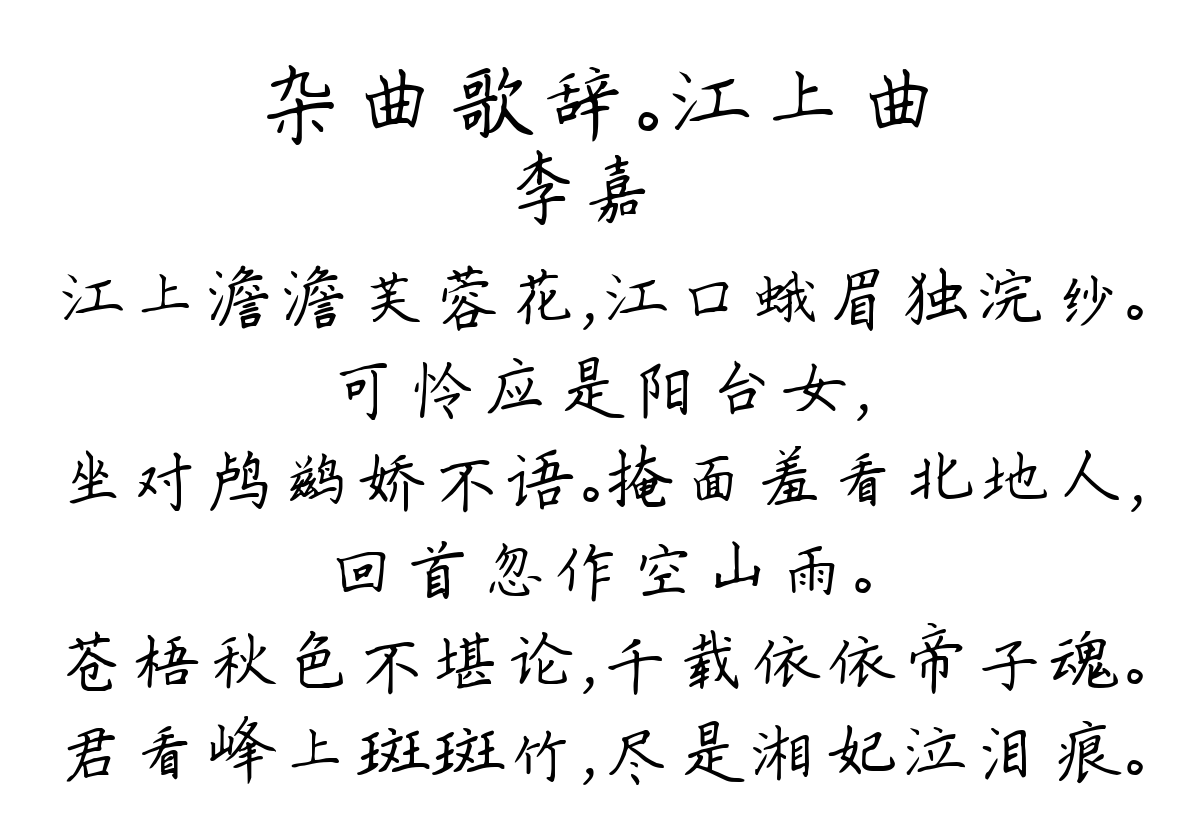 杂曲歌辞。江上曲
李嘉
江上澹澹芙蓉花,江口蛾眉独浣纱。
可怜应是阳台女,
坐对鸬鹚娇不语。掩面羞看北地人,
回首忽作空山雨。
苍梧秋色不堪论,千载依依帝子魂。
君看峰上斑斑竹,尽是湘妃泣泪痕。